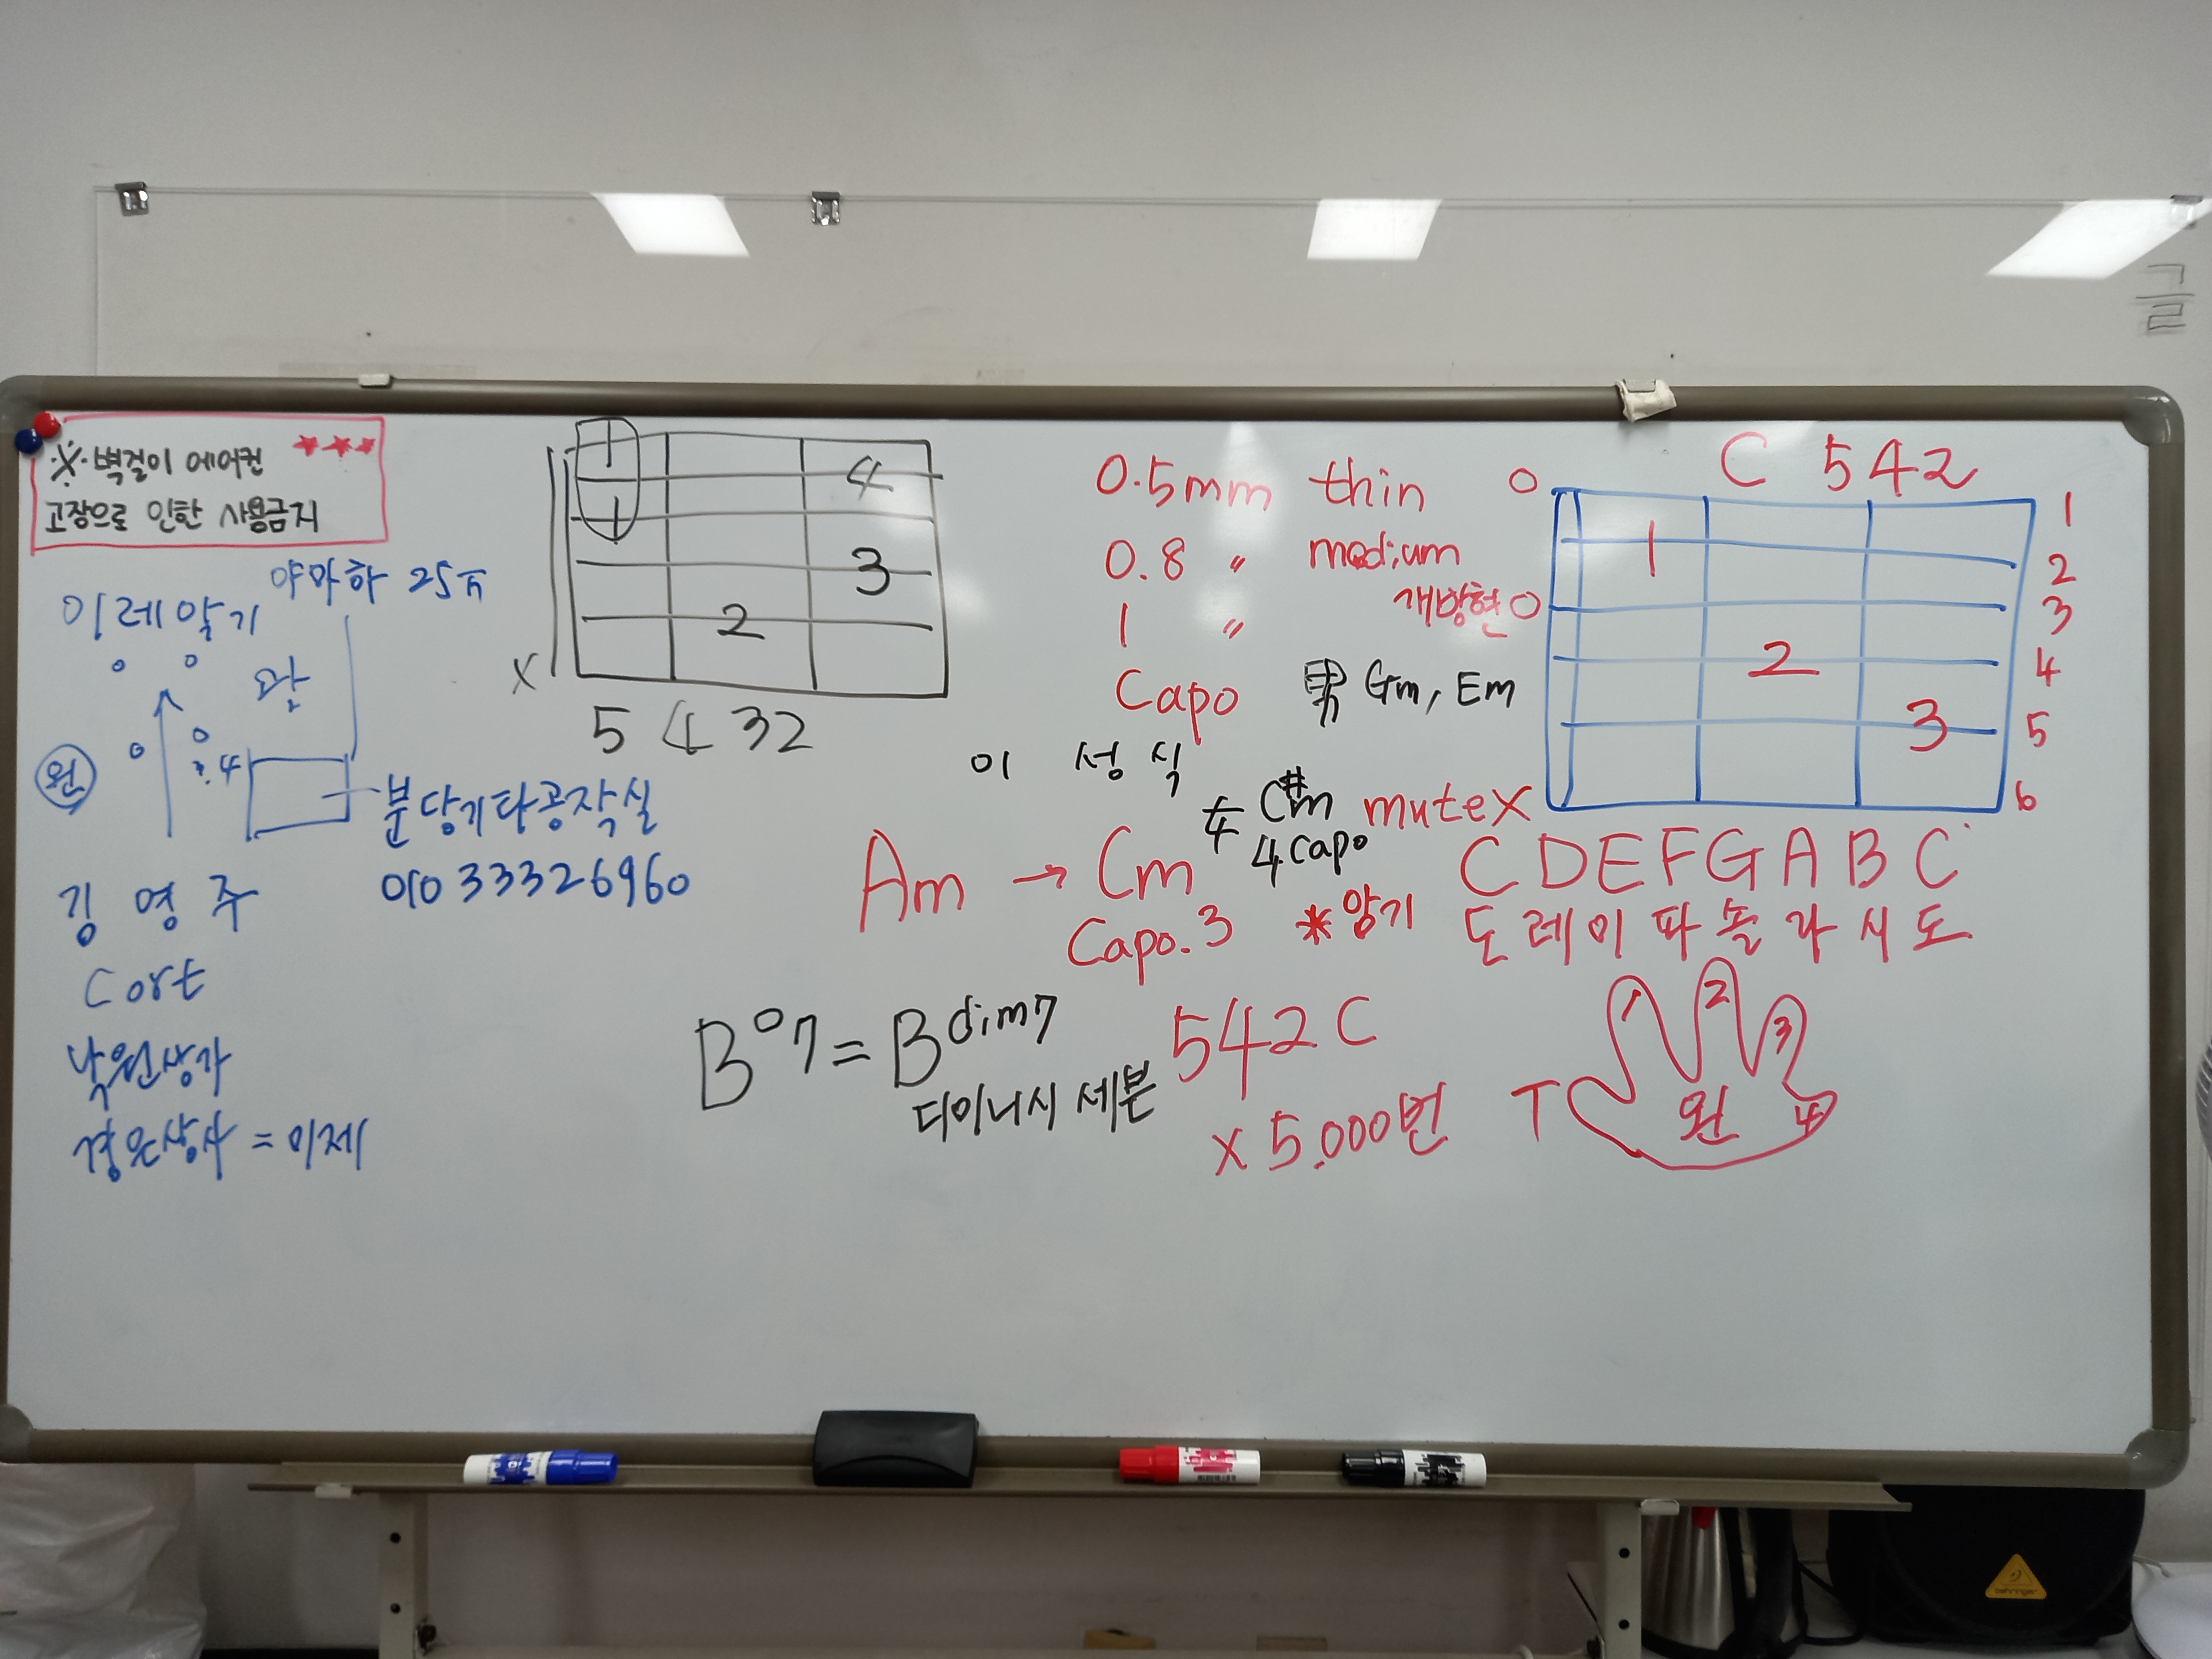 ※벽걸이 에어컨 ★★★
고장으로 인한 사용금지
야마하 25π
이레악기
팔
원
분당기타공작실
010 33326960
김영주
Cort
낙원상가
경은상사 = 이제
1 4
1
3
2
X
5 4 32
0.5mm thin
0.8 〃 medium
1 〃
개방현 O
Capo 男 Gm, Em
이 성 식
女 C#m
4 capo
mute X
Am → Cm
Capo.3
*암기
B°7 = Bdim7
디미니시 세븐
542 C
X 5,000번
C 542
O
1
1
2
3
2
4
3
5
6
C D E F G A B C
도 레 미 파 솔 라 시 도
1 2 3
T 왼 4
behringer